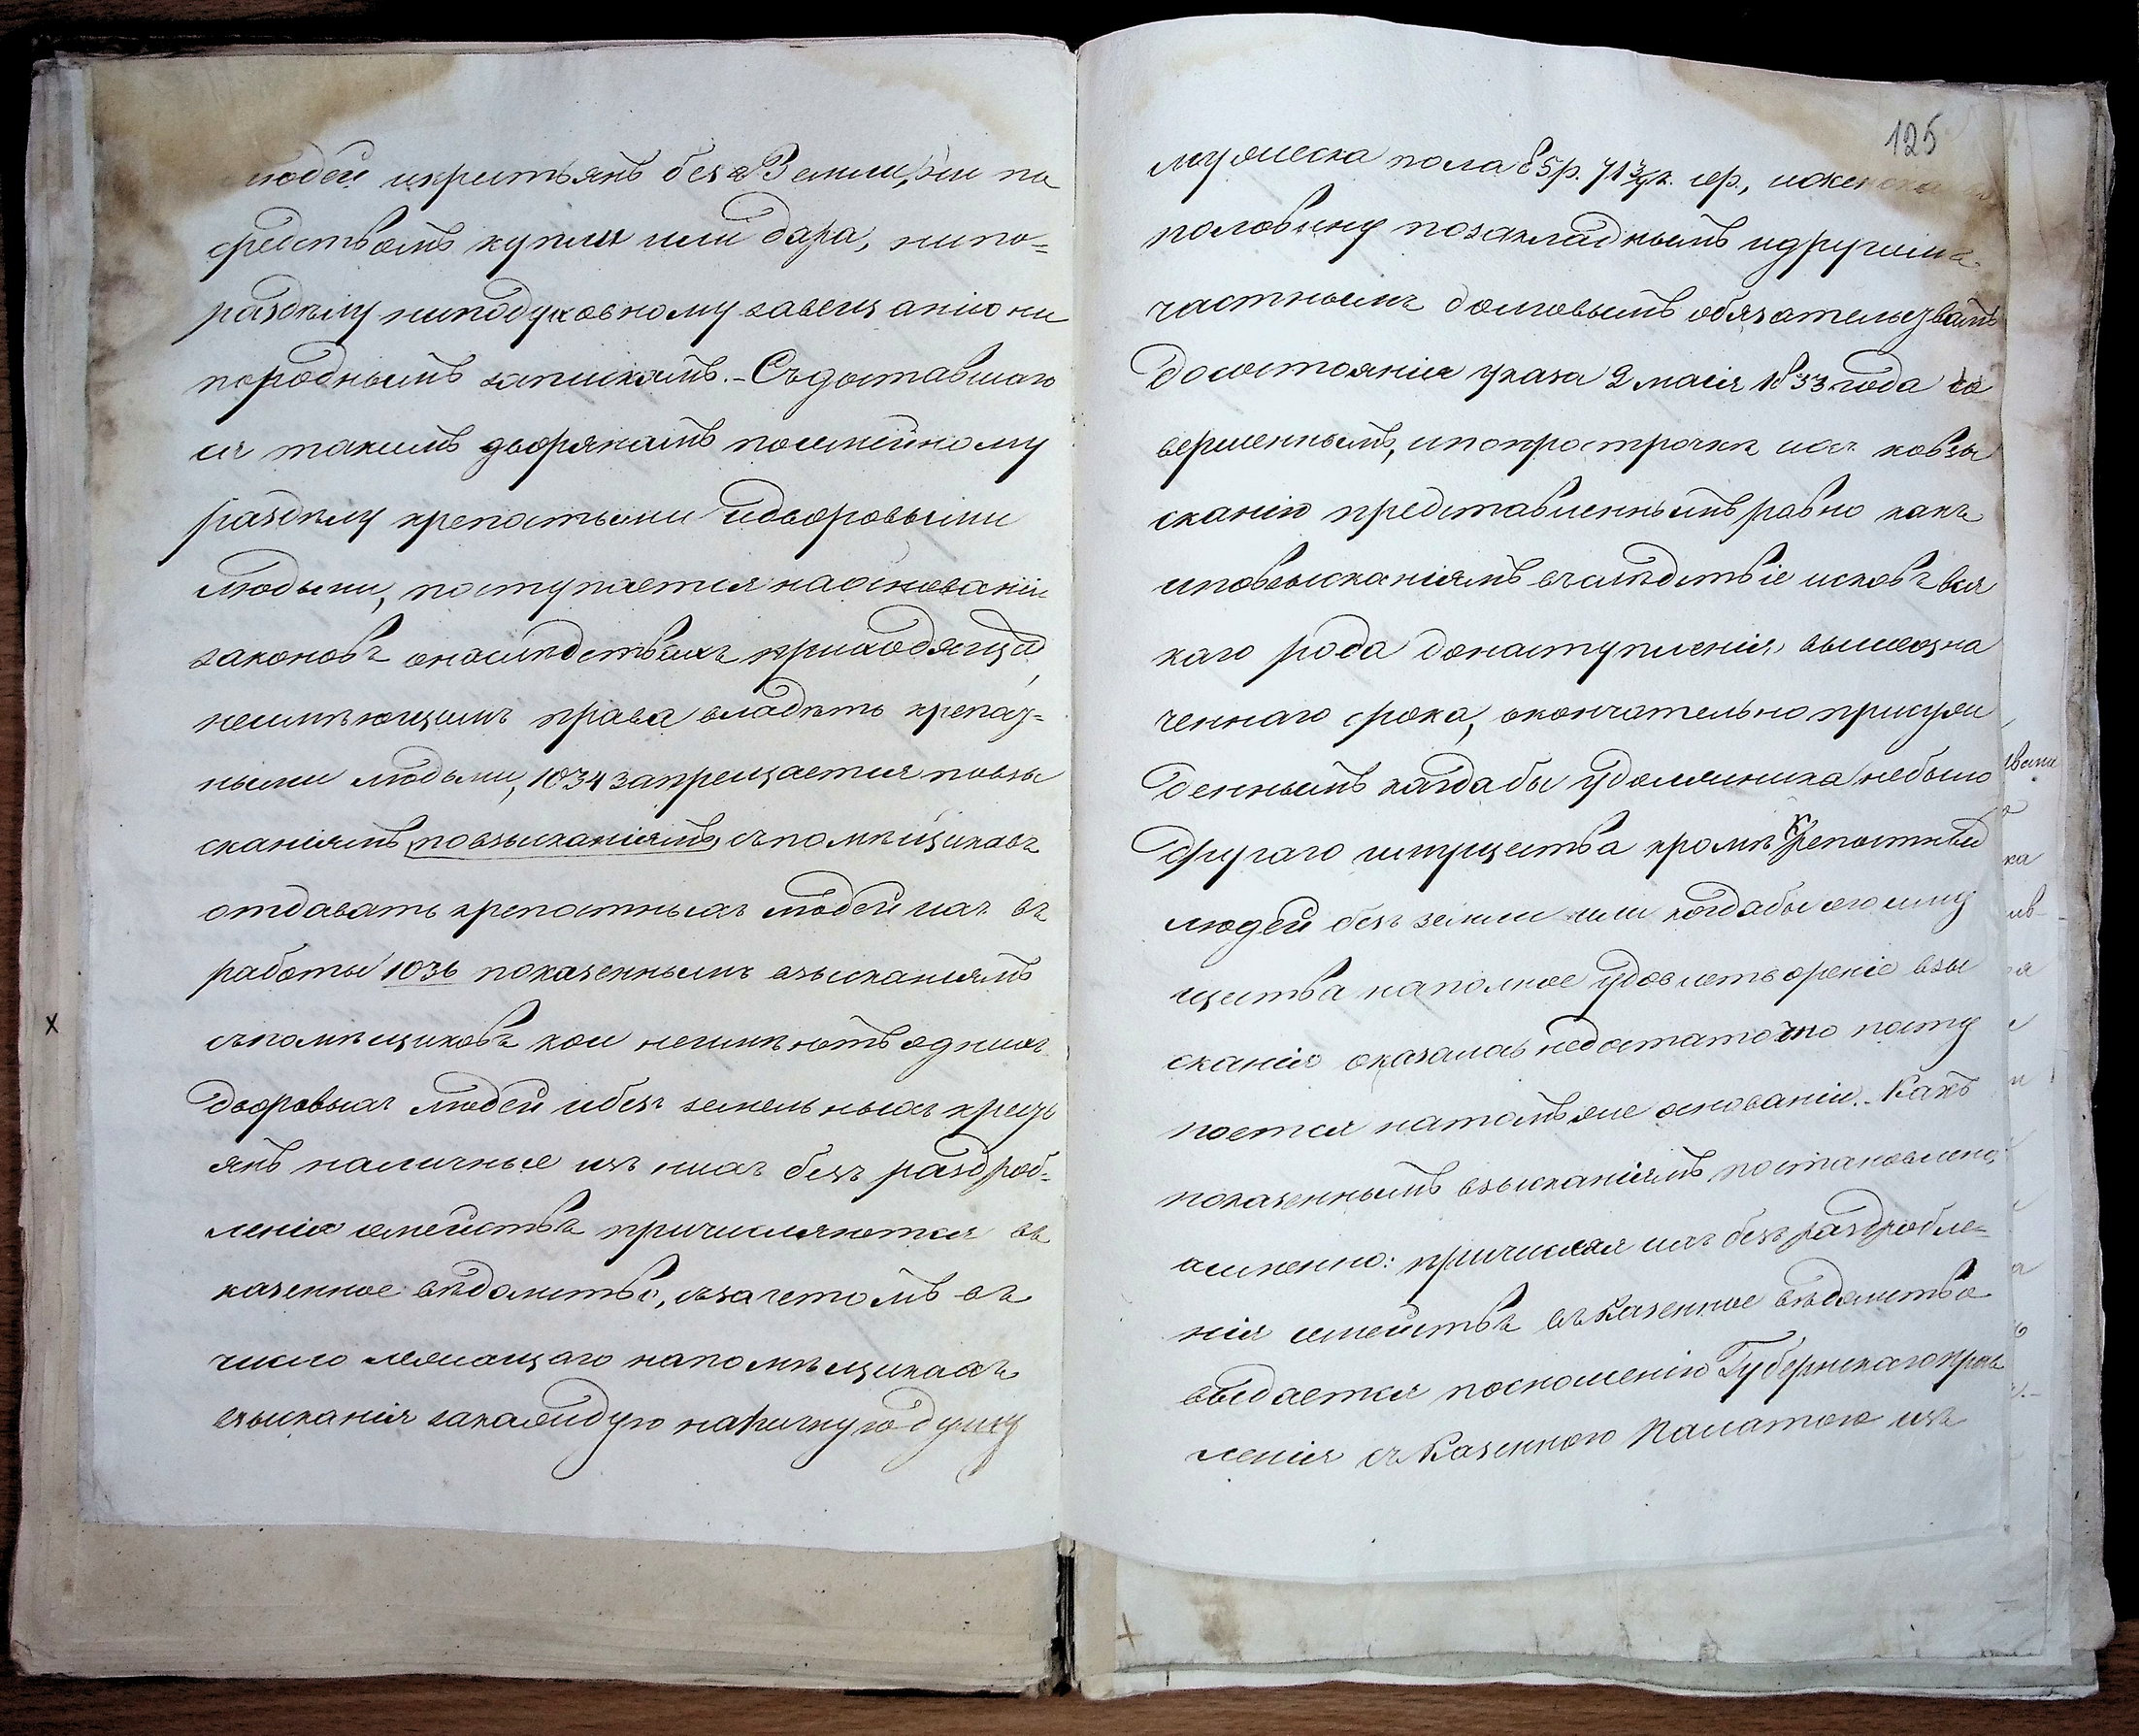 людей икрестьянъ безъ Земли, ни по
средствомъ купли или дара, нипо=
раздѣлу ниподуховному завещанію ни
породнымъ запискамъ. - Съдоставшаго
ся такимъ дворянамъ посемейному
раздѣлу крепостьми идворовыми
людьми, поступается наоснованіи
законовъ онаслѣдствахъ приходящид,
неимѣющимъ права владѣть крепос=
ными людьми, 1034 запрещается повзы
сканіямъ повзысканіямъ съпомѣщиковъ
отдавать крепостныхъ людей ихъ въ
работы 1036 показеннымъ взысканіямъ
съпомѣщиковъ кои неимѣютъ однихъ
дворовыхъ людей ибезъ земельныхъ кресть
янъ наличные изъ нихъ безъ раздроб-
ленія семействъ причисляются въ
казенное вѣдомство, съзачетомъ въ
число лежащаго напомѣщикахъ
взысканія закаждую наличную душу
125
мужеска пола 85р. 71 3/7к. сер., иженска
половину позакладнымъ идругимъ
частнымъ долговымъ обязательствамъ
досостоянія указа 2 маія 1833 года со
вершеннымъ, ипопрострочкѣ ихъ ковзы
сканію представленнымъ равно какъ
иповзысканіямъ вслѣдствіе исковъ вся
каго рода донаступленія вышеозна
ченнаго срока, окончательно присуж
деннымъ когдабы удолжника небыло
другаго имущества кромѣ Крепостныхъ
людей безъ земли или когдабы егоиму
щества наполное удовлетвореніе взы
сканія оказалось недостаточно посту
пается натомъже основаніи. Какъ
показеннымъ взысканіямъ постановлено,
аименно: причисляя ихъ безъ раздробле=
нія семействъ въКазенное вѣдомство
выдается посношенію Губернскагоправ
ленія съКазенною палатою изъ